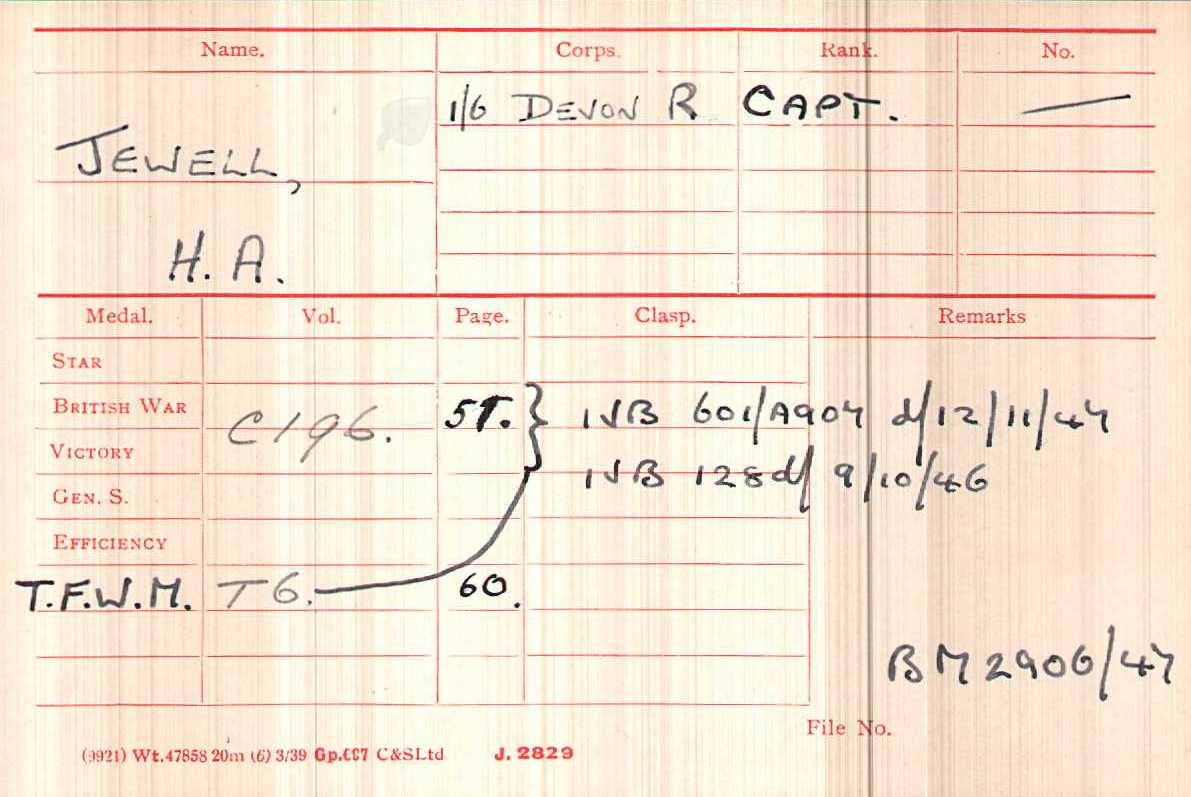 Name. Corps. Rank. No.
1/6 DEVON R CAPT. —
JEWELL,
H. A.
Medal. Vol. Page. Clasp. Remarks
STAR
BRITISH WAR C196. 5T. } IVB 601/A907 d/12/11/47
VICTORY IVB 128 d/ 9/10/46
GEN. S.
EFFICIENCY
T.F.W.M. T6. 60.
BM 2906/47
File No.
(9921) Wt.47858 20m (6) 3/39 Gp.697 C&SLtd J. 2829